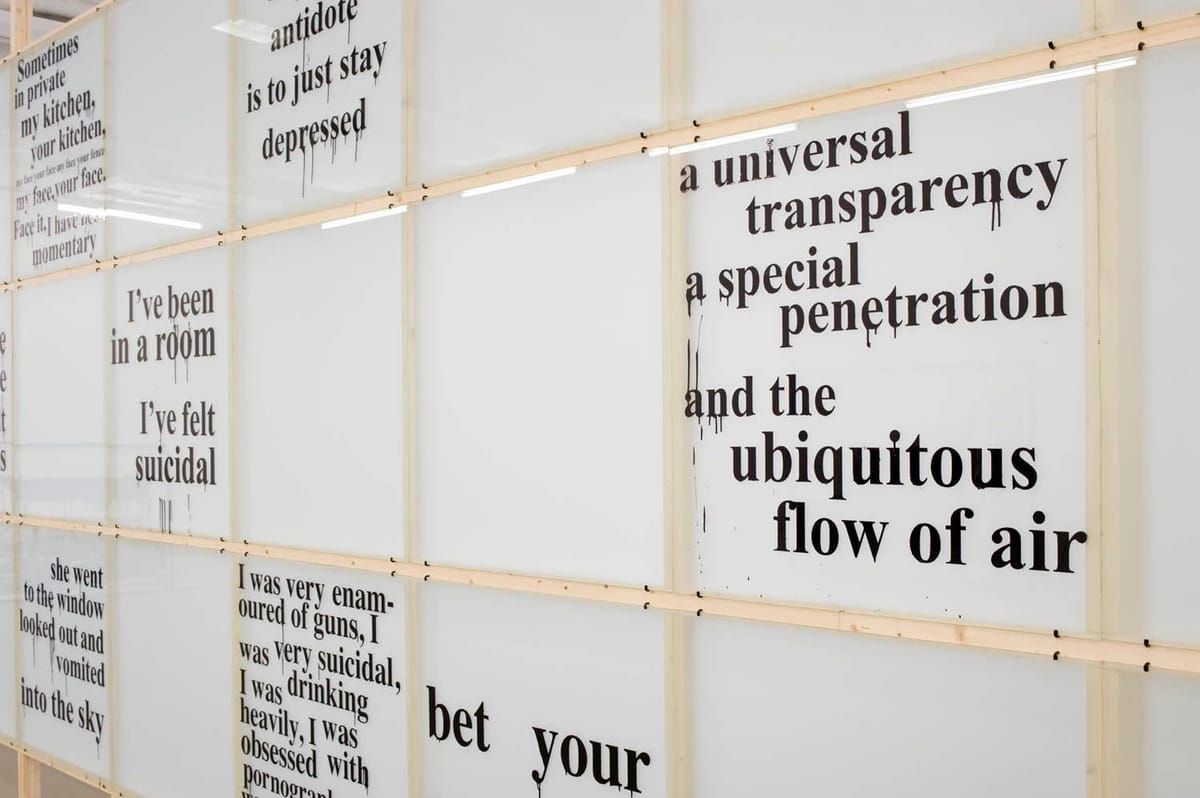 Sometimes
in private
my kitchen,
your kitchen,
my face your face my face your fence
my face, your face.
Face it, I have
momentary
antidote
is to just stay
depressed
I've been
in a room
I've felt
suicidal
a universal
transparency
a special
penetration
and the
ubiquitous
flow of air
she went
to the window
looked out and
vomited
into the sky
I was very enam-
oured of guns, I
was very suicidal,
I was drinking
heavily, I was
obsessed with
bet your